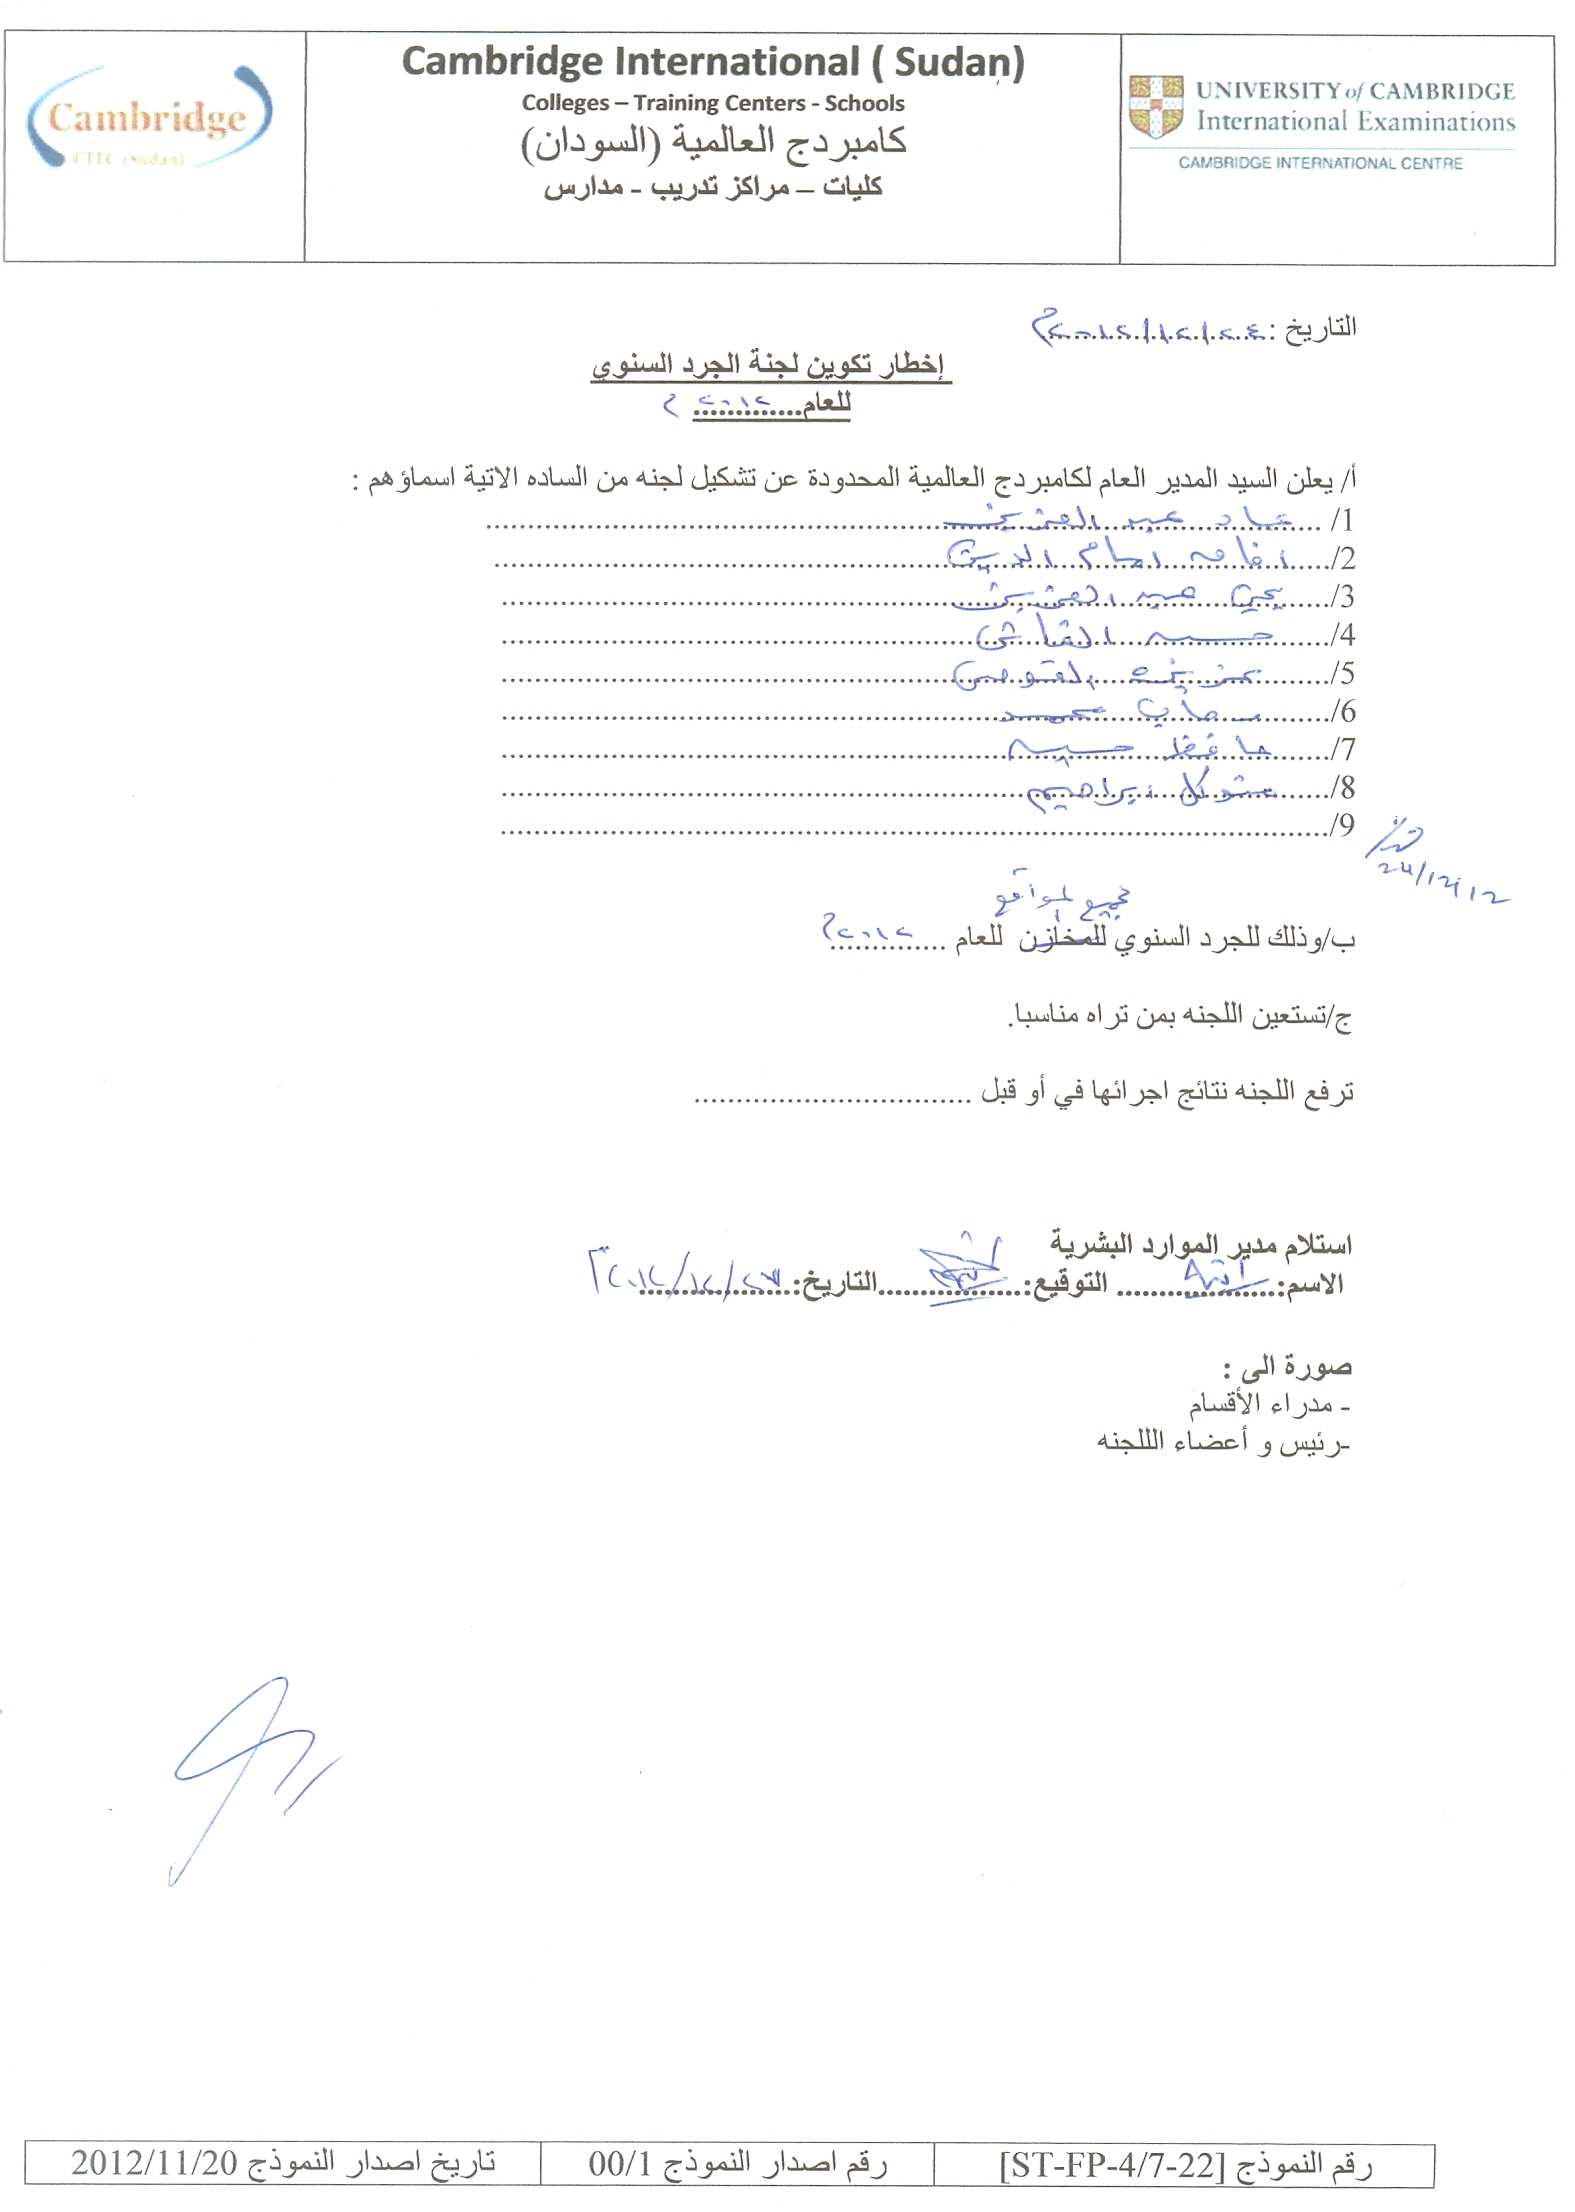 Cambridge
CITC (Sudan)
Cambridge International ( Sudan)
Colleges – Training Centers - Schools
كامبردج العالمية (السودان)
كليات – مراكز تدريب - مدارس
UNIVERSITY of CAMBRIDGE
International Examinations
CAMBRIDGE INTERNATIONAL CENTRE
التاريخ : ٢٠١٢/١٢/٢٤م
إخطار تكوين لجنة الجرد السنوي
للعام ٢٠١٢ م
أ/ يعلن السيد المدير العام لكامبردج العالمية المحدودة عن تشكيل لجنه من الساده الاتية اسماؤهم :
1/ عبد العزيز
2/ امام الدين
3/ يحي عبد العزيز
4/
5/
6/ رحاب محمد
7/ حافظ
8/ متوكل ابراهيم
9/
24/12/12
لجميع المواقع
ب/وذلك للجرد السنوي للمخازن للعام ٢٠١٢م
ج/تستعين اللجنه بمن تراه مناسبا.
ترفع اللجنه نتائج اجرائها في أو قبل ................................
استلام مدير الموارد البشرية
الاسم: التوقيع: التاريخ: ٢٠١٢/١٢/٢٣م
صورة الى :
- مدراء الأقسام
-رئيس و أعضاء الللجنه
رقم النموذج [ST-FP-4/7-22] رقم اصدار النموذج 00/1 تاريخ اصدار النموذج 2012/11/20